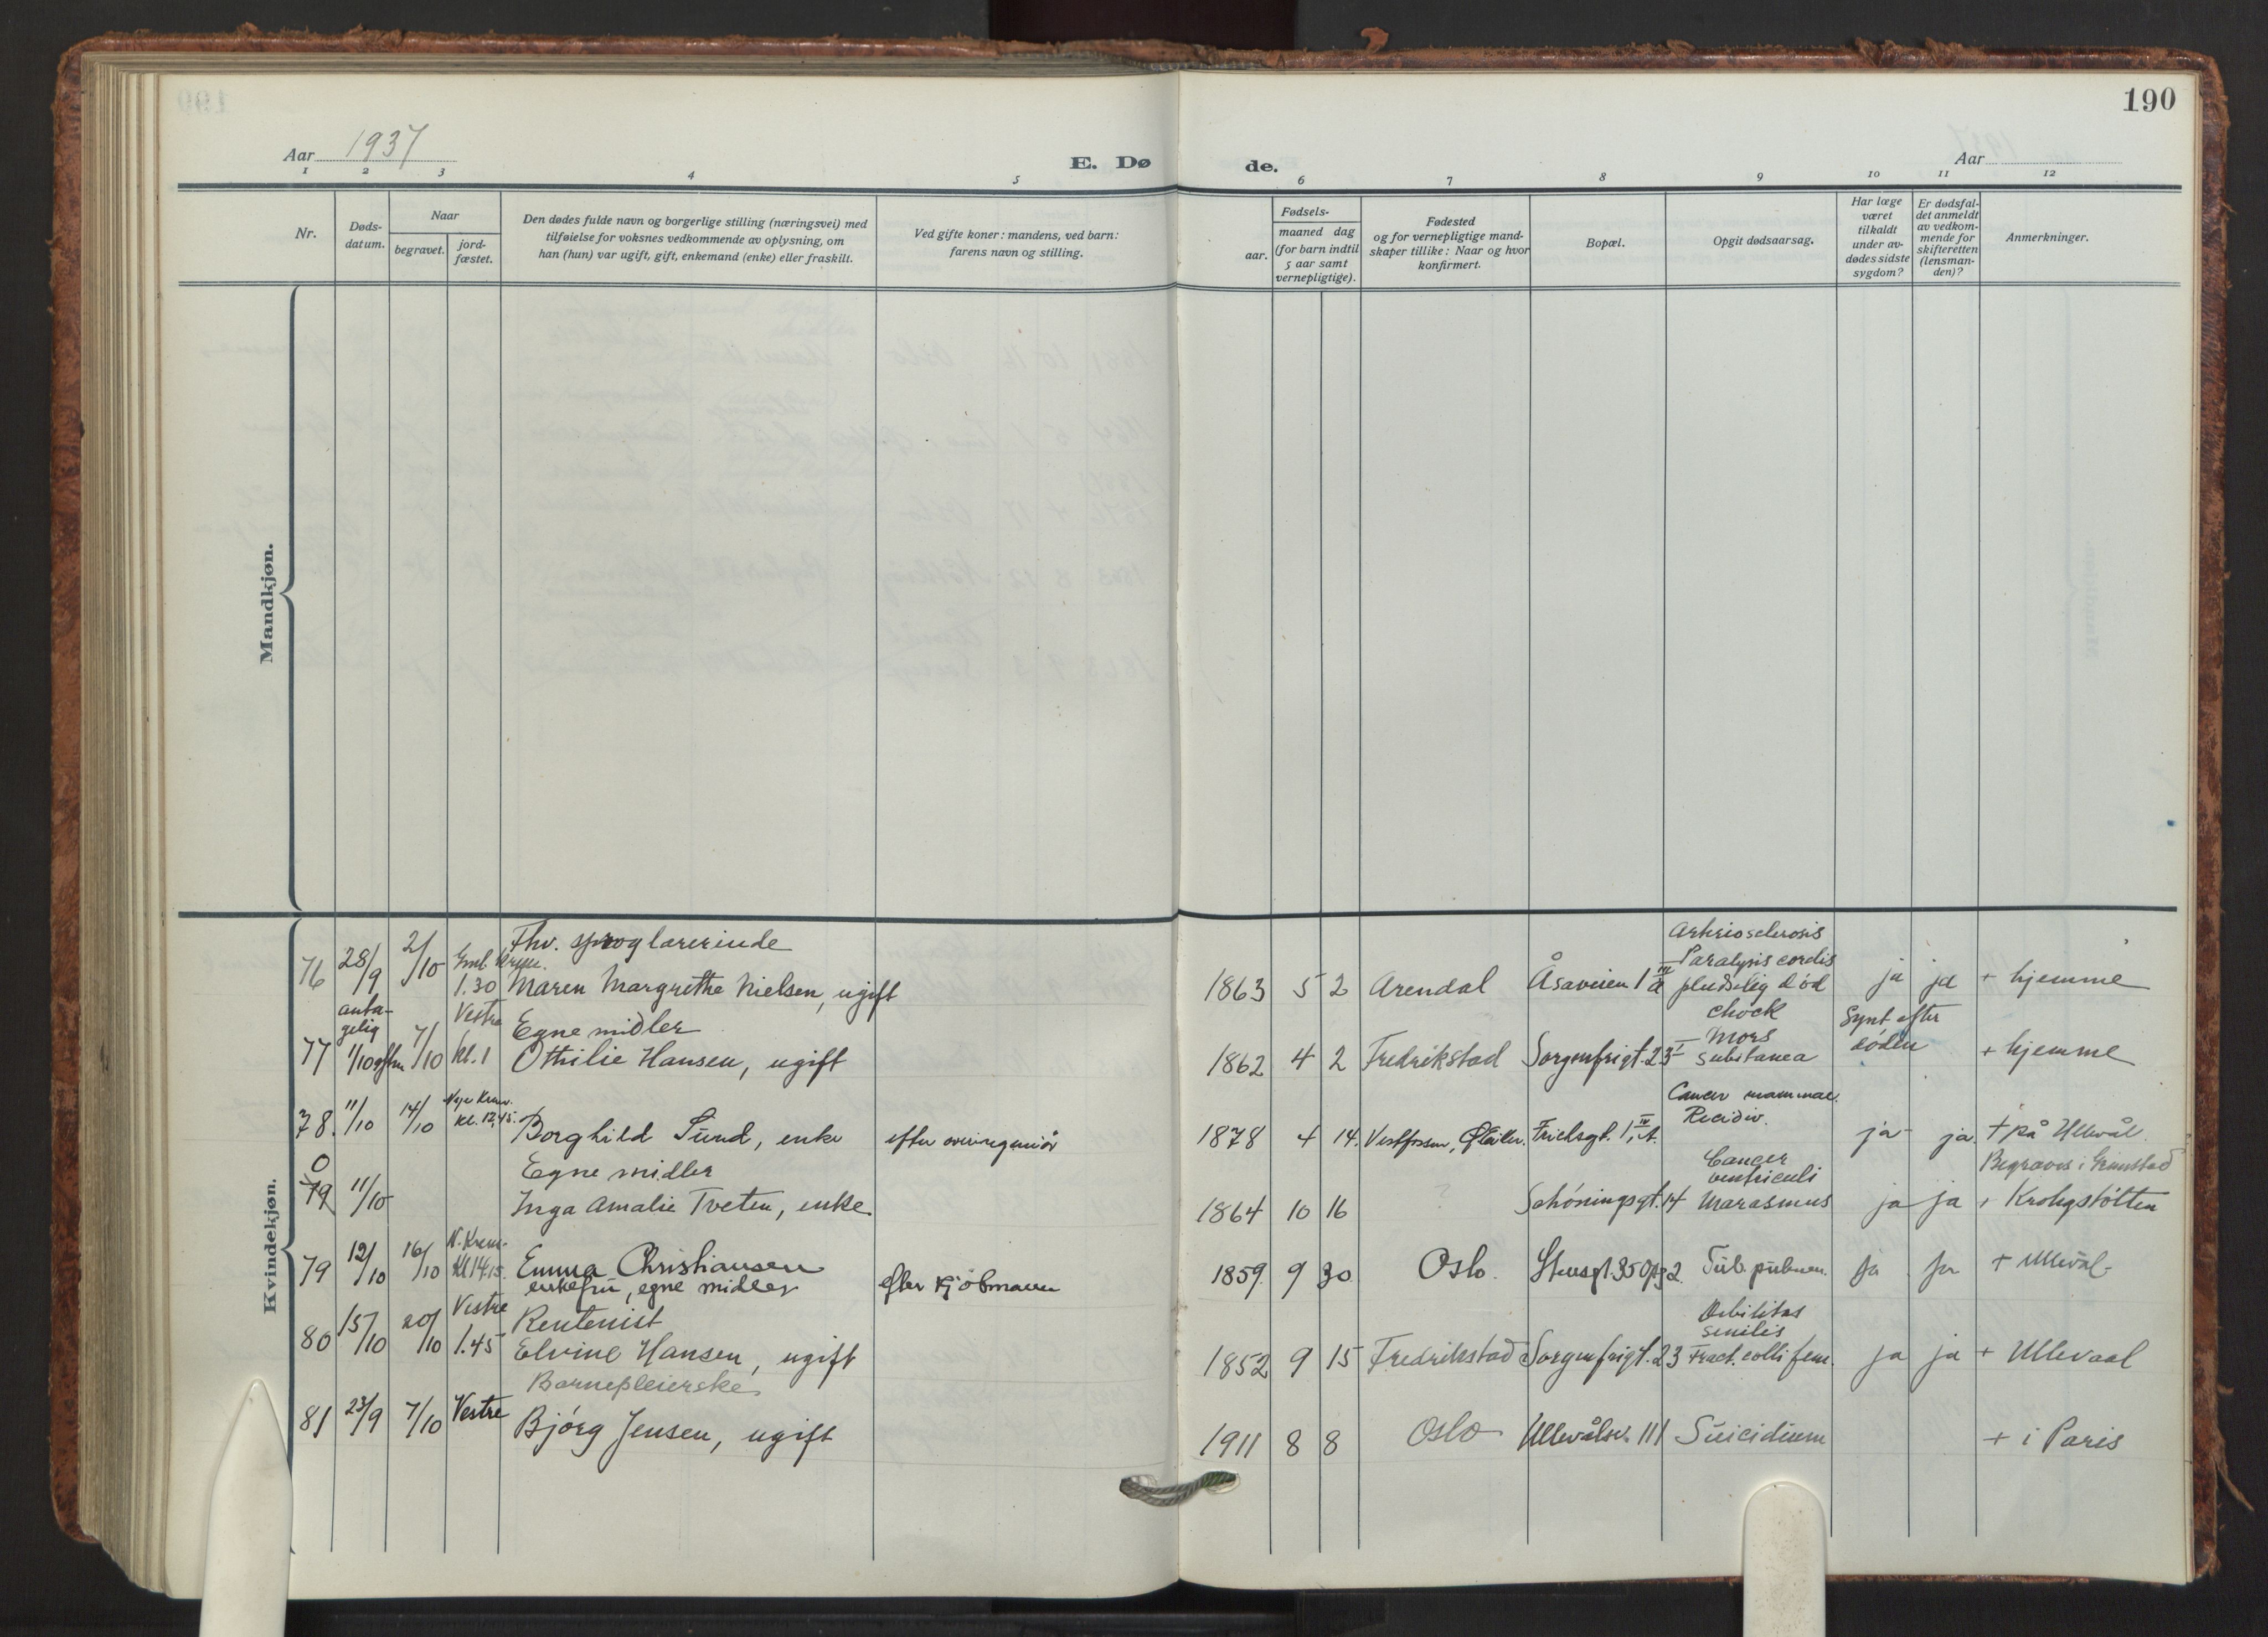 190
Aar 1937
E. Dø
de.
Aar
1 2 3 4 5 6 7 8 9 10 11 12
Nr.
Døds-
datum.
Naar
begravet.
jord-
fæstet.
Den dødes fulde navn og borgerlige stilling (næringsvei) med
tilføielse for voksnes vedkommende av oplysning, om
han (hun) var ugift, gift, enkemand (enke) eller fraskilt.
Ved gifte koner: mandens, ved barn:
farens navn og stilling.
aar.
Fødsels-
maaned dag
(for barn indtil
5 aar samt
vernepligtige).
Fødested
og for vernepligtige mand-
skaper tillike: Naar og hvor
konfirmert.
Bopæl.
Opgit dødsaarsag.
Har læge
været
tilkaldt
under av-
dødes sidste
sygdom?
Er dødsfal-
det anmeldt
av vedkom-
mende for
skifteretten
(lensman-
den)?
Anmerkninger.
Mandkjøn.
Kvindekjøn.
Fhv. sproglærerinde
Arteriosclerosis
76 28/9 2/10 Gml. Krem.
Paralysis cordis
1.30 Maren Margrethe Nielsen, ugift 1863 5 2 Arendal Åsaveien 1 IV a pludselig død ja ja + hjemme
anta-
gelig
Vestre
Egne midler
chock
Synt efter
døden
77 1/10 eftm 7/10 kl. 1 Othilie Hansen, ugift 1862 4 2 Fredrikstad Sorgenfrigt. 23 I Mors
subitanea + hjemme
Nye Krem.
Cancer mammae.
78. 11/10 14/10 kl. 12,45. Borghild Sund, enke efter overingeniør 1878 4 14. Vestfossen, Ø. Eiker. Frichsgt. 1, IV Recidiv. ja ja + på Ullevål.
0
Egne midler
Cancer
ventriculi
Begraves i Grimstad
79 11/10 Inga Amalie Tveten, enke 1864 10 16 ? Schøningsgt. 14 Marasmus ja ja + Krohgstøtten
N. Krem.
79 12/10 16/10 Kl 14.15. Emma Christiansen 1859. 9 30. Oslo. Stensgt. 35 Opg 2. Tub. pulmon. ja ja + Ullevål
enkefru, egne midler efter kjøbmann
Vestre
Rentenist
Debilitas
senilis
80 15/10 20/10 1.45 Elvine Hansen, ugift 1852 9 15 Fredrikstad Sorgenfrigt. 23 Fract. colli fem. ja ja + Ullevaal
Barnepleierske
81 23/9 7/10 Vestre Bjørg Jensen, ugift 1911 8 8 Oslo Ullevålsv. 111 Suicidium + i Paris